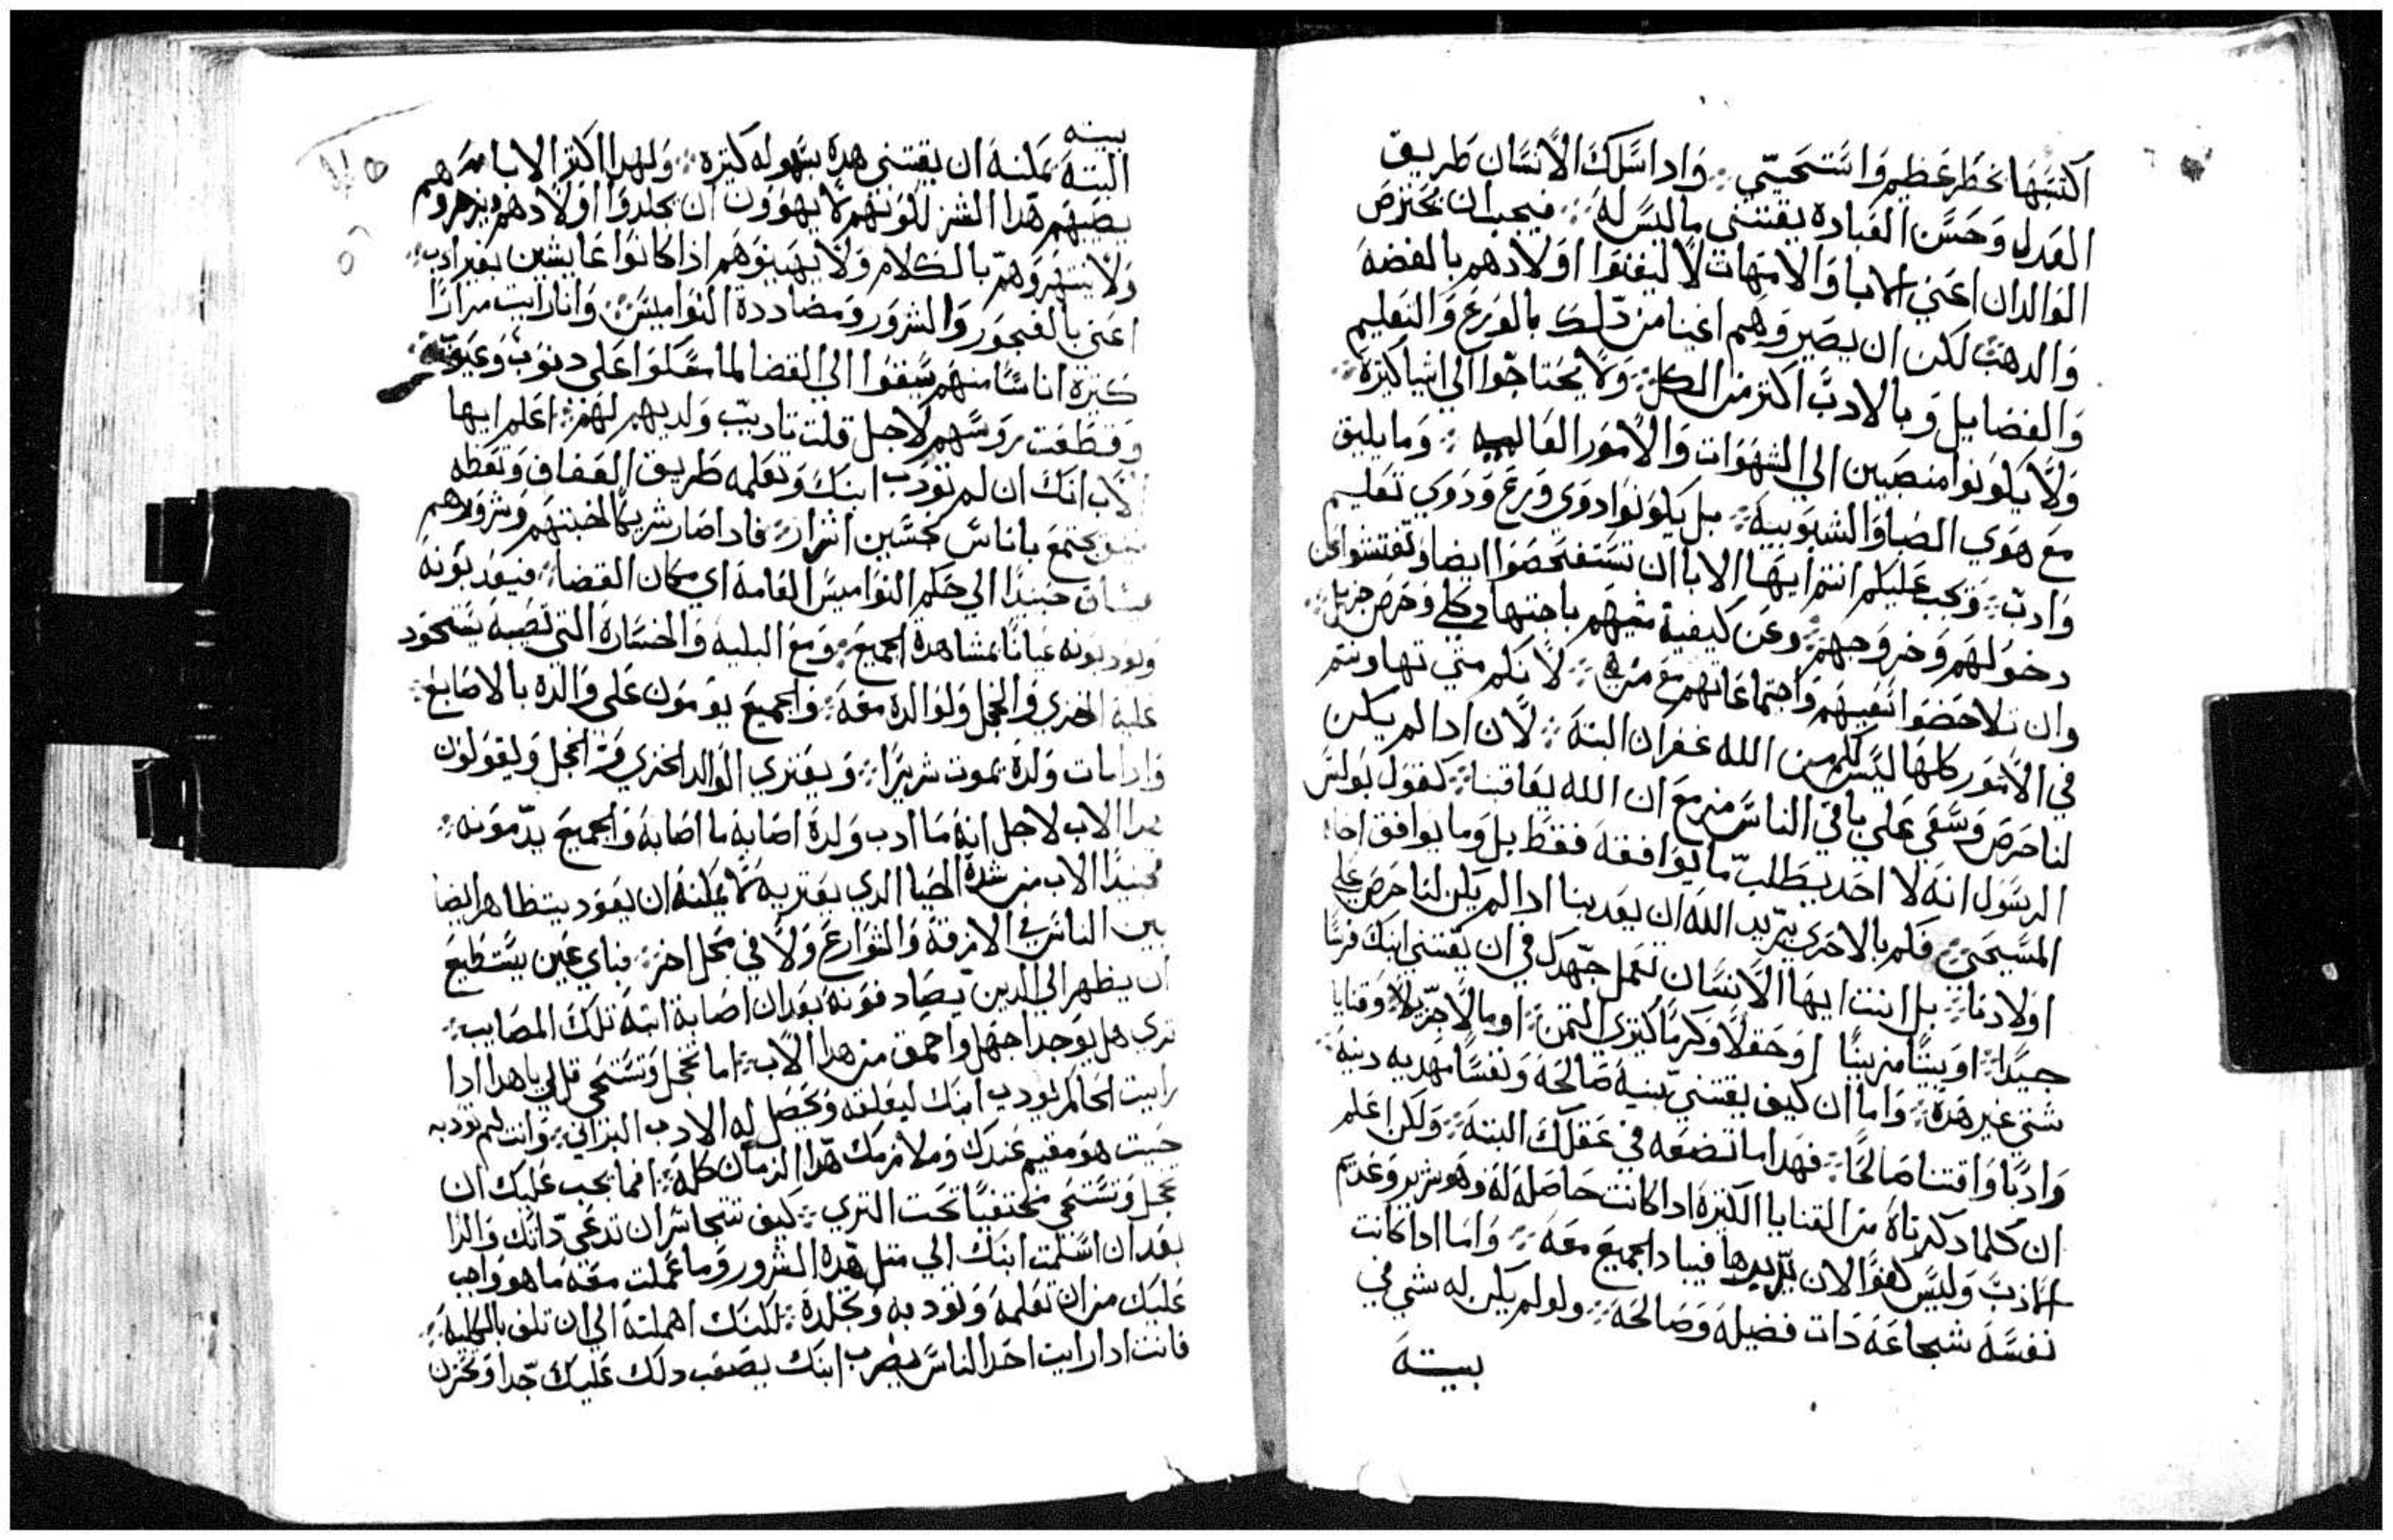 اكتسبها بخطر عظيم واستحيي ܀ وادا سلك الانسان طريق
العدل وحسن العباده يقتني ماليس له ܀ فيجب ان يحترص
الوالدان اعني الابا والامهات لا ليغنوا اولادهم بالفضه
والدهب لكن ان يصيروهم اغنيا من دلك بالورع والتعليم
والفضايل وبالادب اكتر من الكل ܀ ولا يحتاجوا الي اشيا كتيره ܀
ولا يكونوا منصبين الي الشهوات والامور العالميه ܀ وما يليق
مع هوي الصبا والشبوبيه ܀ بل يكونوا دوي ورع ودوي تعليم
وادب ܀ ويجب عليكم انتم ايها الابا ان تستفحصوا ايضا وتفتشوا عن
دخولهم وخروجهم ܀ وعن كيفية مشيهم باجتهاد كلي وحرص جزيل ܀
وان تلاحضوا تقبهم واجتماعاتهم مع من هي ܀ لانكم متي تهاونتم
في الامور كلها ليس لكم من الله غفران البته ܀ لان ادا لم يكن
لنا حرص وسعي علي باقي الناس مزمع ان الله يعاقبنا ܀ كقول بولس
الرسول انه لا احد يطلب ما يوافقه فقط بل وما يوافق اخاه
المسيحي ܀ فكم بالاحري يريد الله ان يعدبنا ادا لم يكن لنا حرص علي
اولادنا ܀ بل انت ايها الانسان تعمل جهدك في ان يقتني ابنك فرسا
جيدا ܀ او بيتا مزينا او حقلا وكرما كتيري التمن ܀ او مالا جزيلا وقنايا
شتي غير هده ܀ واما ان كيف يقتني بنية صالحه ونفسا مهديه دينه ܀
وادبا واقتنا صالحا ܀ فهدا ما تضعه في عقلك البته ܀ ولكن اعلم
ان كلما دكرناه من القنايا الكتيره ادا كانت حاصله له وهو شرير وعديم
الادب وليس كفوا لان يدبرها فيباد الجميع معه ܀ واما ادا كانت
نفسه شجاعه دات فضيله وصالحه ܀ ولو لم يكن له شي في
بيته
بيته
البته يمكنه ان يقتني هده بسهوله كتيره ܀ ولهدا اكتر الابا
يصيبهم هدا الشر لكونهم لا يهوون ان يجلدوا اولادهم ويزجروهم
ولا ينتهروهم بالكلام ولا يهينوهم ادا كانوا عايشين بغير ادب ܀
اعني بالفجور والشرور ومضاددة النواميس ܀ وانا رايت مرارا
كتيره اناسا منهم سيقوا الي القضا لما سعلوا علي دنوب وعيوب ܀
وقطعت رووسهم لاجل قلت تاديب ولديهم لهم ܀ اعلم ايها
الاب انك ان لم تودب ابنك وتعلمه طريق العفاف وتعظه
يجتمع باناس نجسين اشرار ܀ فادا صار شريكا لخبتهم وشرورهم
يساق حينيدا الي حكم النواميس العامه اي مكان القضا ܀ فيعدبونه
ويودبونه عيانا بمشاهدة الجميع ܀ ومع البليه والخساره التي تصيبه يستحود
عليه الخزي والخجل ولوالده معه ܀ والجميع يومون علي والده بالاصابع ܀
وادا مات ولده يموت شريرا ܀ ويعتري الوالد الخزي مر الخجل وليقولون
هدا الاب لاجل انه ما ادب ولده اصابه ما اصابه والجميع يدمونه ܀
فحينيدا الاب من شدة الحيا الدي يعتريه لا يمكنه ان يعود يتظاهر ايضا
بين الناس في الازقه والشوارع ولا في محل اخر ܀ فباي عين يستطيع
ان يظهر الي الدين يصادفونه بعد ان اصابة ابنه تلك المصايب ܀
تري هل يوجد اجهل واحمق من هدا الاب ܀ اما تخجل وتستحي قل لي ياهدا ادا
رايت الحاكم يودب ابنك ليعلقه ويحصل له الادب البراني ܀ وانت لم تودبه
حيت هو مقيم عندك وملازمك هدا الزمان كله ܀ افما يجب عليك ان
تخجل وتستحي مختفيا تحت التري ܀ كيف تتجاسر ان تدعي داتك والدا
بعد ان اسلمت ابنك الي متل هده الشرور وما عملت معه ما هو واجب
عليك من ان تعلمه وتودبه وتجلده ܀ لكنك اهملته الي ان تلف بالكليه ܀
فانت ادا رايت احد الناس يضرب ابنك يصعب دلك عليك جدا وتحزن